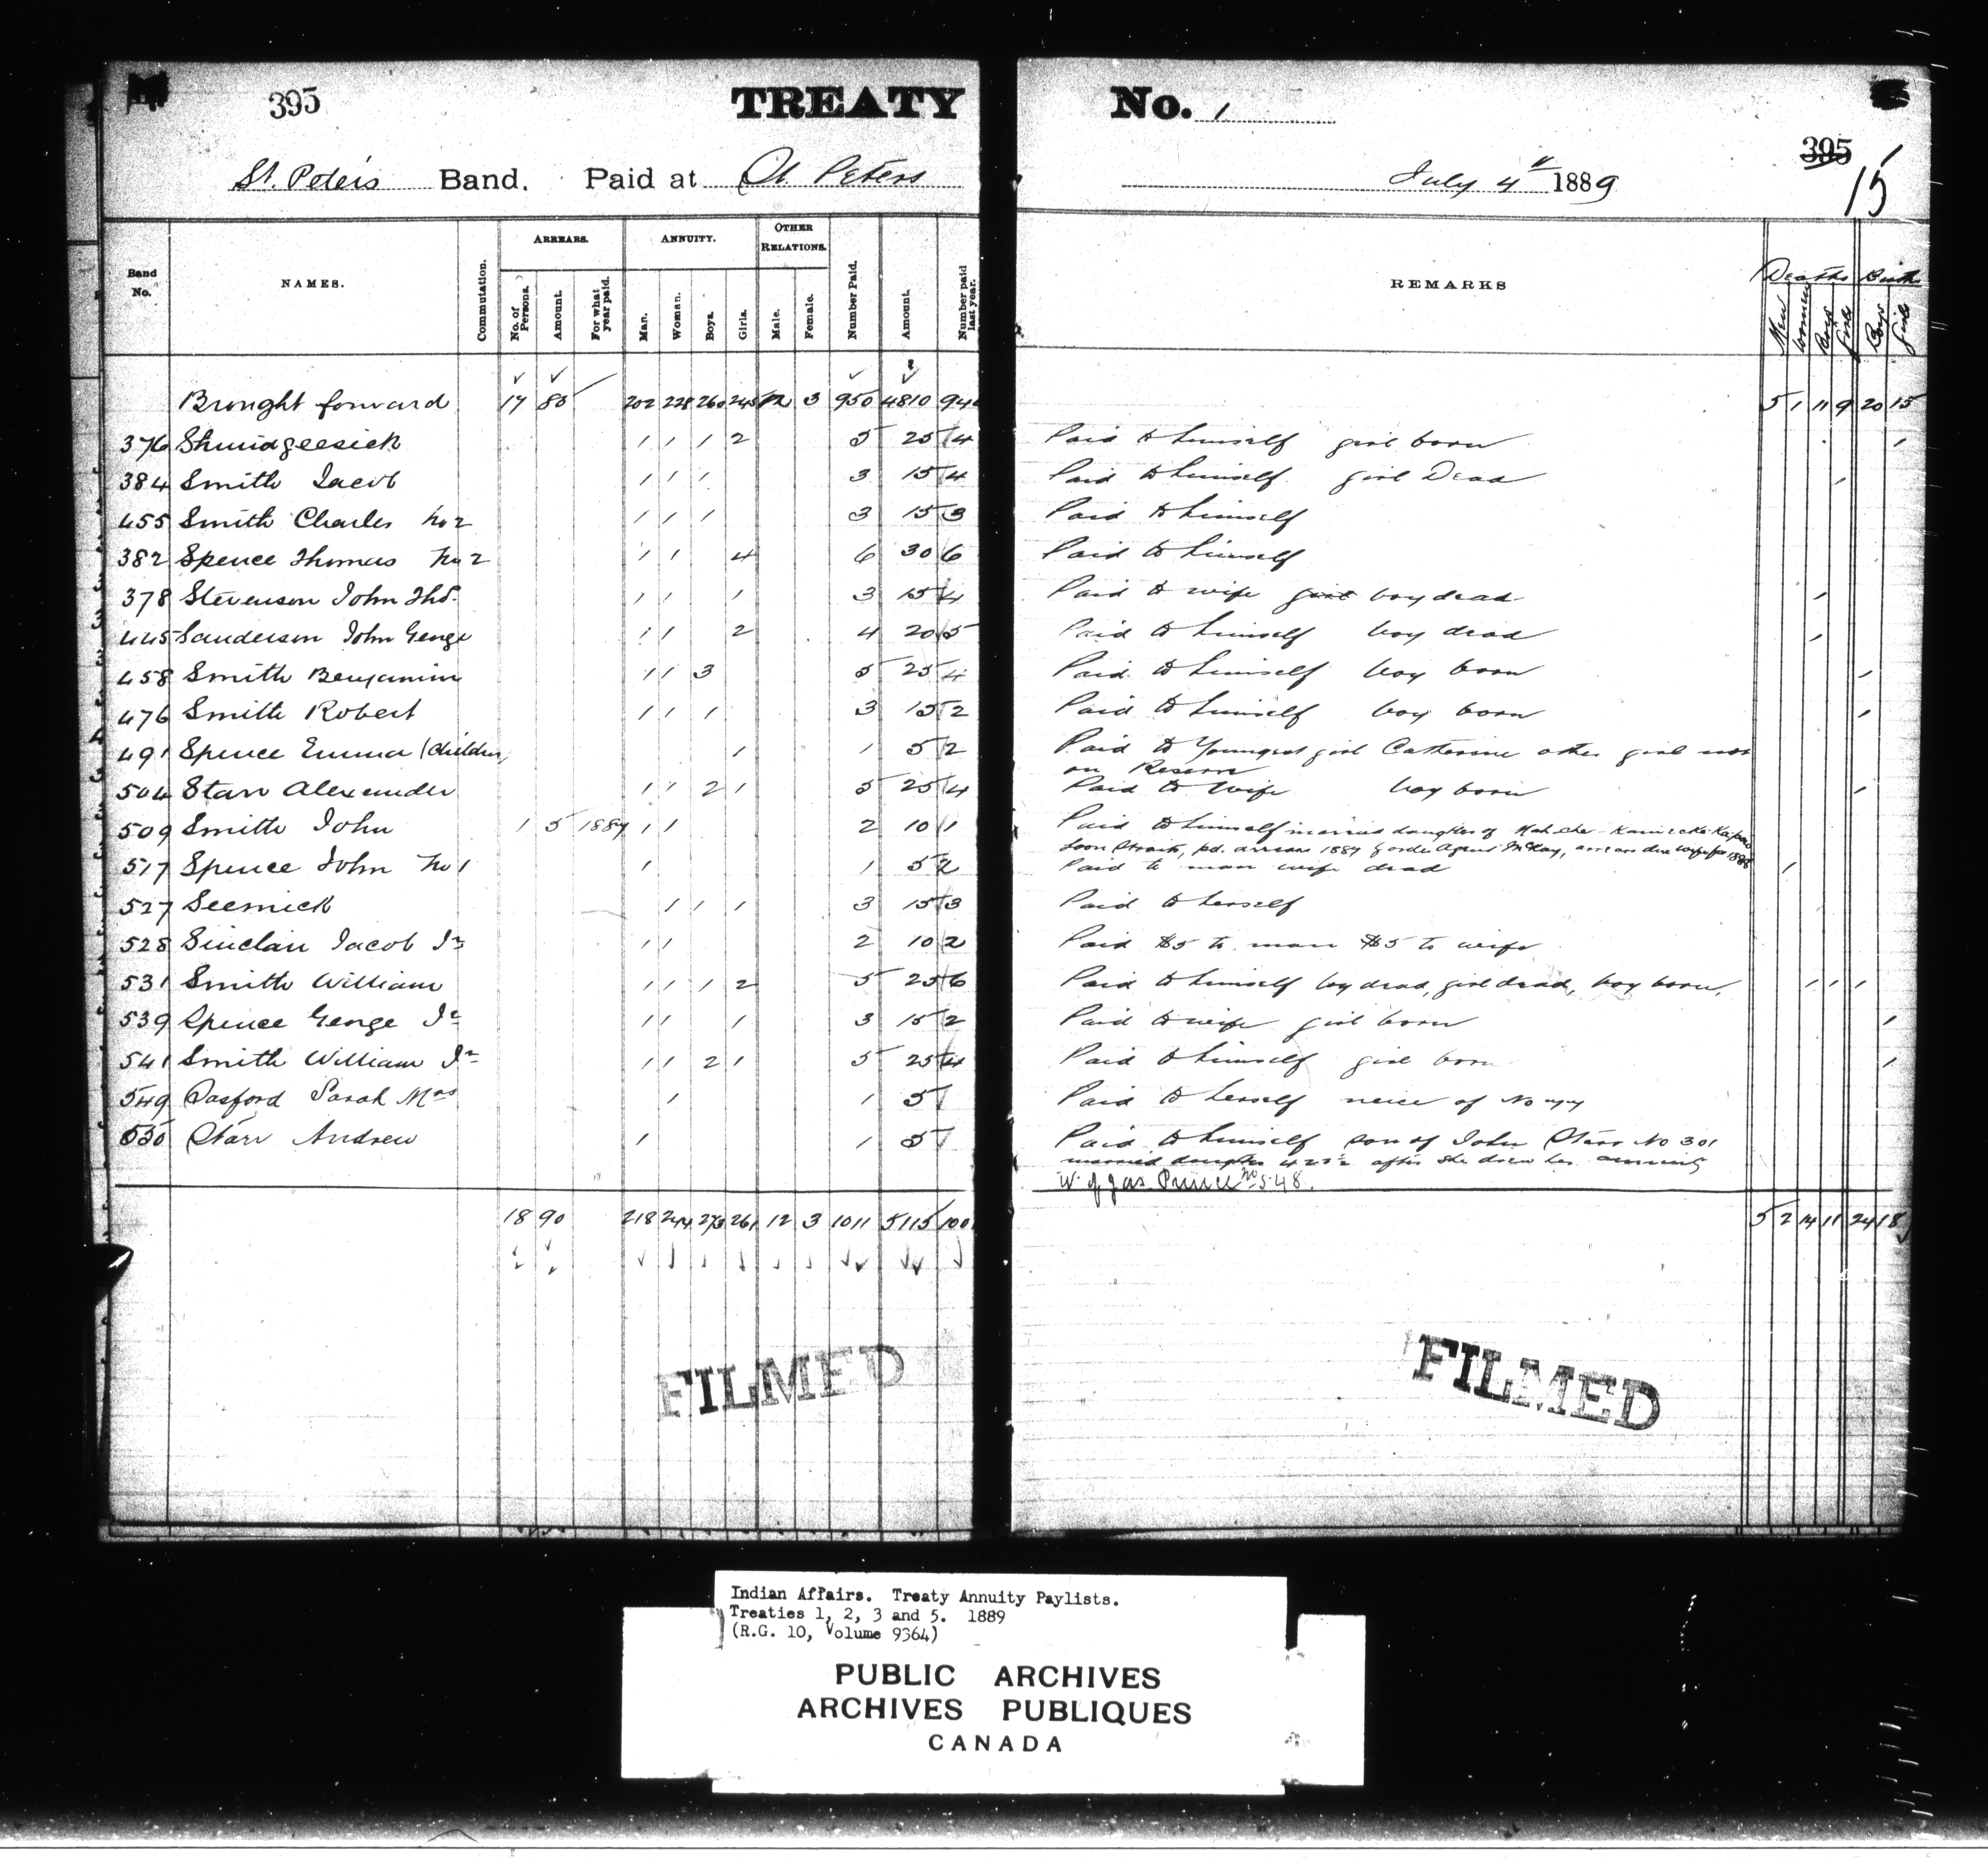 395 TREATY No. 1
395
15
St. Peter's Band. Paid at St. Peters July 4th 1889
Band No. NAMES. Commutation. ARREARS. No. of Persons. Amount. For what year paid. ANNUITY. Man. Woman. Boys. Girls. OTHER RELATIONS. Male. Female. Number Paid. Amount. Number paid last year. REMARKS Deaths Men Women Boys Girls Birth Boys Girls
Brought forward 17 85 202 228 260 245 12 3 950 4810 5 1 11 9 20 15
376 Shwidgeesick 1 1 1 2 5 25 4 Paid to himself girl born 1
384 Smith Jacob 1 1 1 3 15 4 Paid to himself girl Dead 1
455 Smith Charles No 2 1 1 1 3 15 3 Paid to himself
382 Spence Thomas No 2 1 1 4 6 30 6 Paid to himself
378 Stevenson John Thos. 1 1 1 3 15 4 Paid to wife girl boy dead 1
445 Sanderson John George 1 1 2 4 20 5 Paid to himself boy dead 1
458 Smith Benjamin 1 1 3 5 25 4 Paid to himself boy born 1
476 Smith Robert 1 1 1 3 15 2 Paid to himself boy born 1
491 Spence Emma (Children) 1 1 5 2 Paid to Youngest girl Catherine other girl not
on Reserve
504 Starr Alexander 1 1 2 1 5 25 4 Paid to wife boy born 1
509 Smith John 1 5 1887 1 1 2 10 1 Paid to himself married daughter of
pd. arrears 1887 order Agent McKay, arrears due wife for 1888
517 Spence John No 1 1 1 5 2 Paid to man wife dead 1
527 Seemick 1 1 1 3 15 3 Paid to herself
528 Sinclair Jacob Jr 1 1 2 10 2 Paid $5 to man $5 to wife
531 Smith William 1 1 1 2 5 25 6 Paid to himself boy dead, girl dead, boy born, 1 1 1
539 Spence George Jr 1 1 1 3 15 2 Paid to wife girl born 1
541 Smith William Jr 1 1 2 1 5 25 4 Paid to himself girl born 1
549 Pasford Sarah Mrs 1 1 5 Paid to herself neice of No
550 Starr Andrew 1 1 5 Paid to himself son of John Starr No 301
married daughter after she drew her annuity
W. of Jas. Prince No 548.
18 90 218 244 273 261 12 3 1011 5115 5 2 14 11 24 18
FILMED
FILMED
Indian Affairs. Treaty Annuity Paylists.
Treaties 1, 2, 3 and 5. 1889
(R.G. 10, Volume 9364)
PUBLIC ARCHIVES
ARCHIVES PUBLIQUES
CANADA